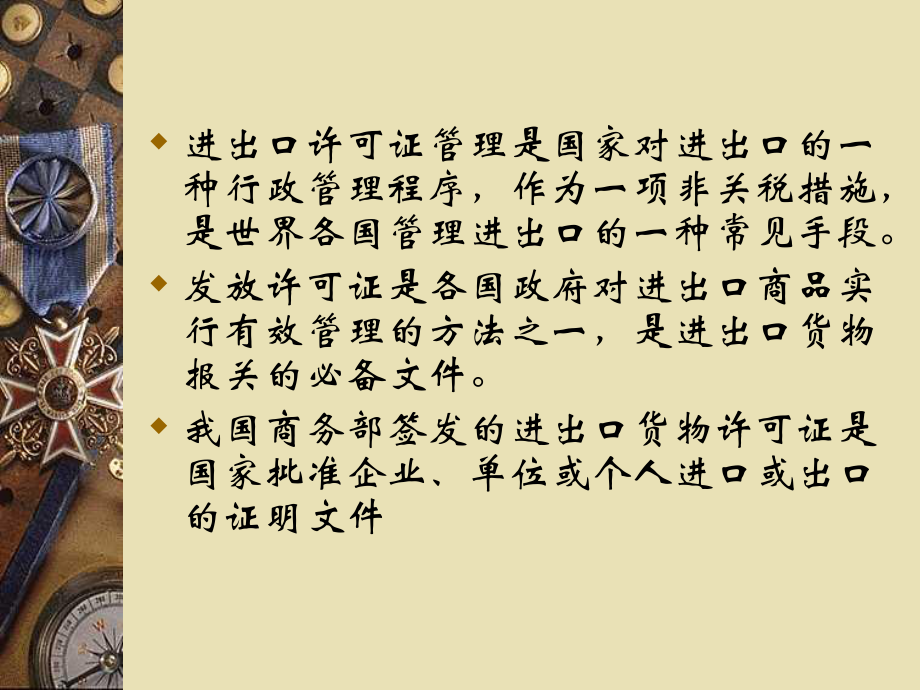 进出口许可证管理是国家对进出口的一
种行政管理程序，作为一项非关税措施，
是世界各国管理进出口的一种常见手段。
发放许可证是各国政府对进出口商品实
行有效管理的方法之一，是进出口货物
报关的必备文件。
我国商务部签发的进出口货物许可证是
国家批准企业、单位或个人进口或出口
的证明文件